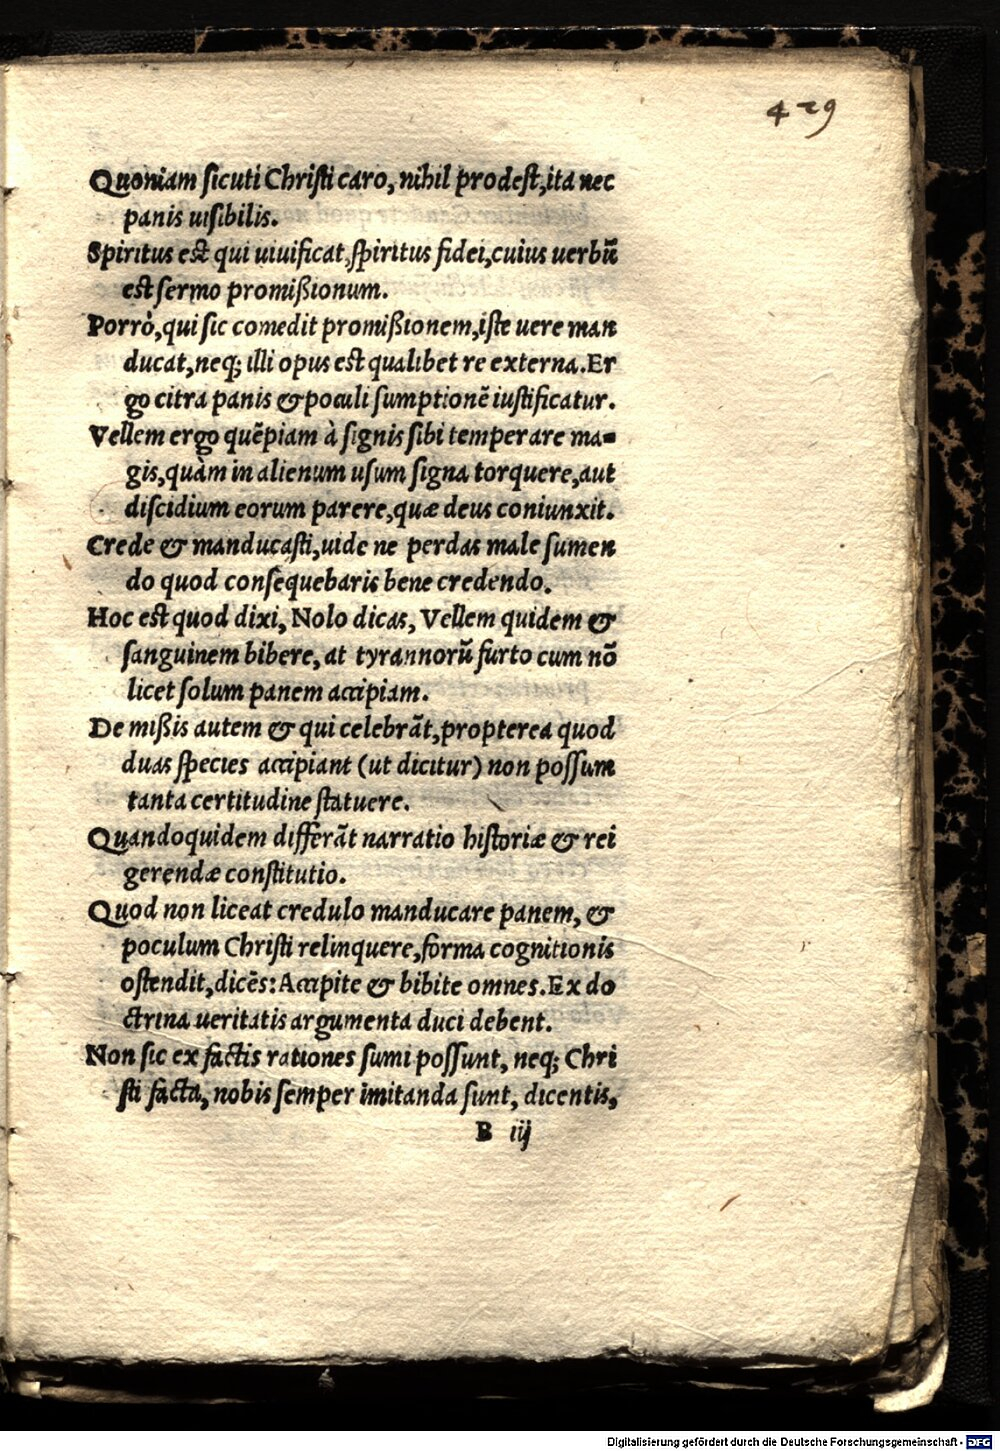 429
Quoniam sicuti Christi caro, nihil prodest, ita nec
panis uisibilis.
Spiritus est qui uiuificat, spiritus fidei, cuius uerbū
est sermo promißionum.
Porrò, qui sic comedit promißionem, iste uere man
ducat, neq; illi opus est qualibet re externa. Er
go citra panis & poculi sumptionē iustificatur.
Vellem ergo quēpiam à signis sibi temperare ma=
gis, quàm in alienum usum signa torquere, aut
discidium eorum parere, quæ deus coniunxit.
Crede & manducasti, uide ne perdas male sumen
do quod consequebaris bene credendo.
Hoc est quod dixi, Nolo dicas, Vellem quidem &
sanguinem bibere, at tyrannorū furto cum nō
licet solum panem accipiam.
De mißis autem & qui celebrāt, propterea quod
duas species accipiant (ut dicitur) non possum
tanta certitudine statuere.
Quandoquidem differāt narratio historiæ & rei
gerendæ constitutio.
Quod non liceat credulo manducare panem, &
poculum Christi relinquere, forma cognitionis
ostendit, dicēs: Accipite & bibite omnes. Ex do
ctrina ueritatis argumenta duci debent.
Non sic ex factis rationes sumi possunt, neq; Chri
sti facta, nobis semper imitanda sunt, dicentis,
B iij
Digitalisierung gefördert durch die Deutsche Forschungsgemeinschaft - DFG